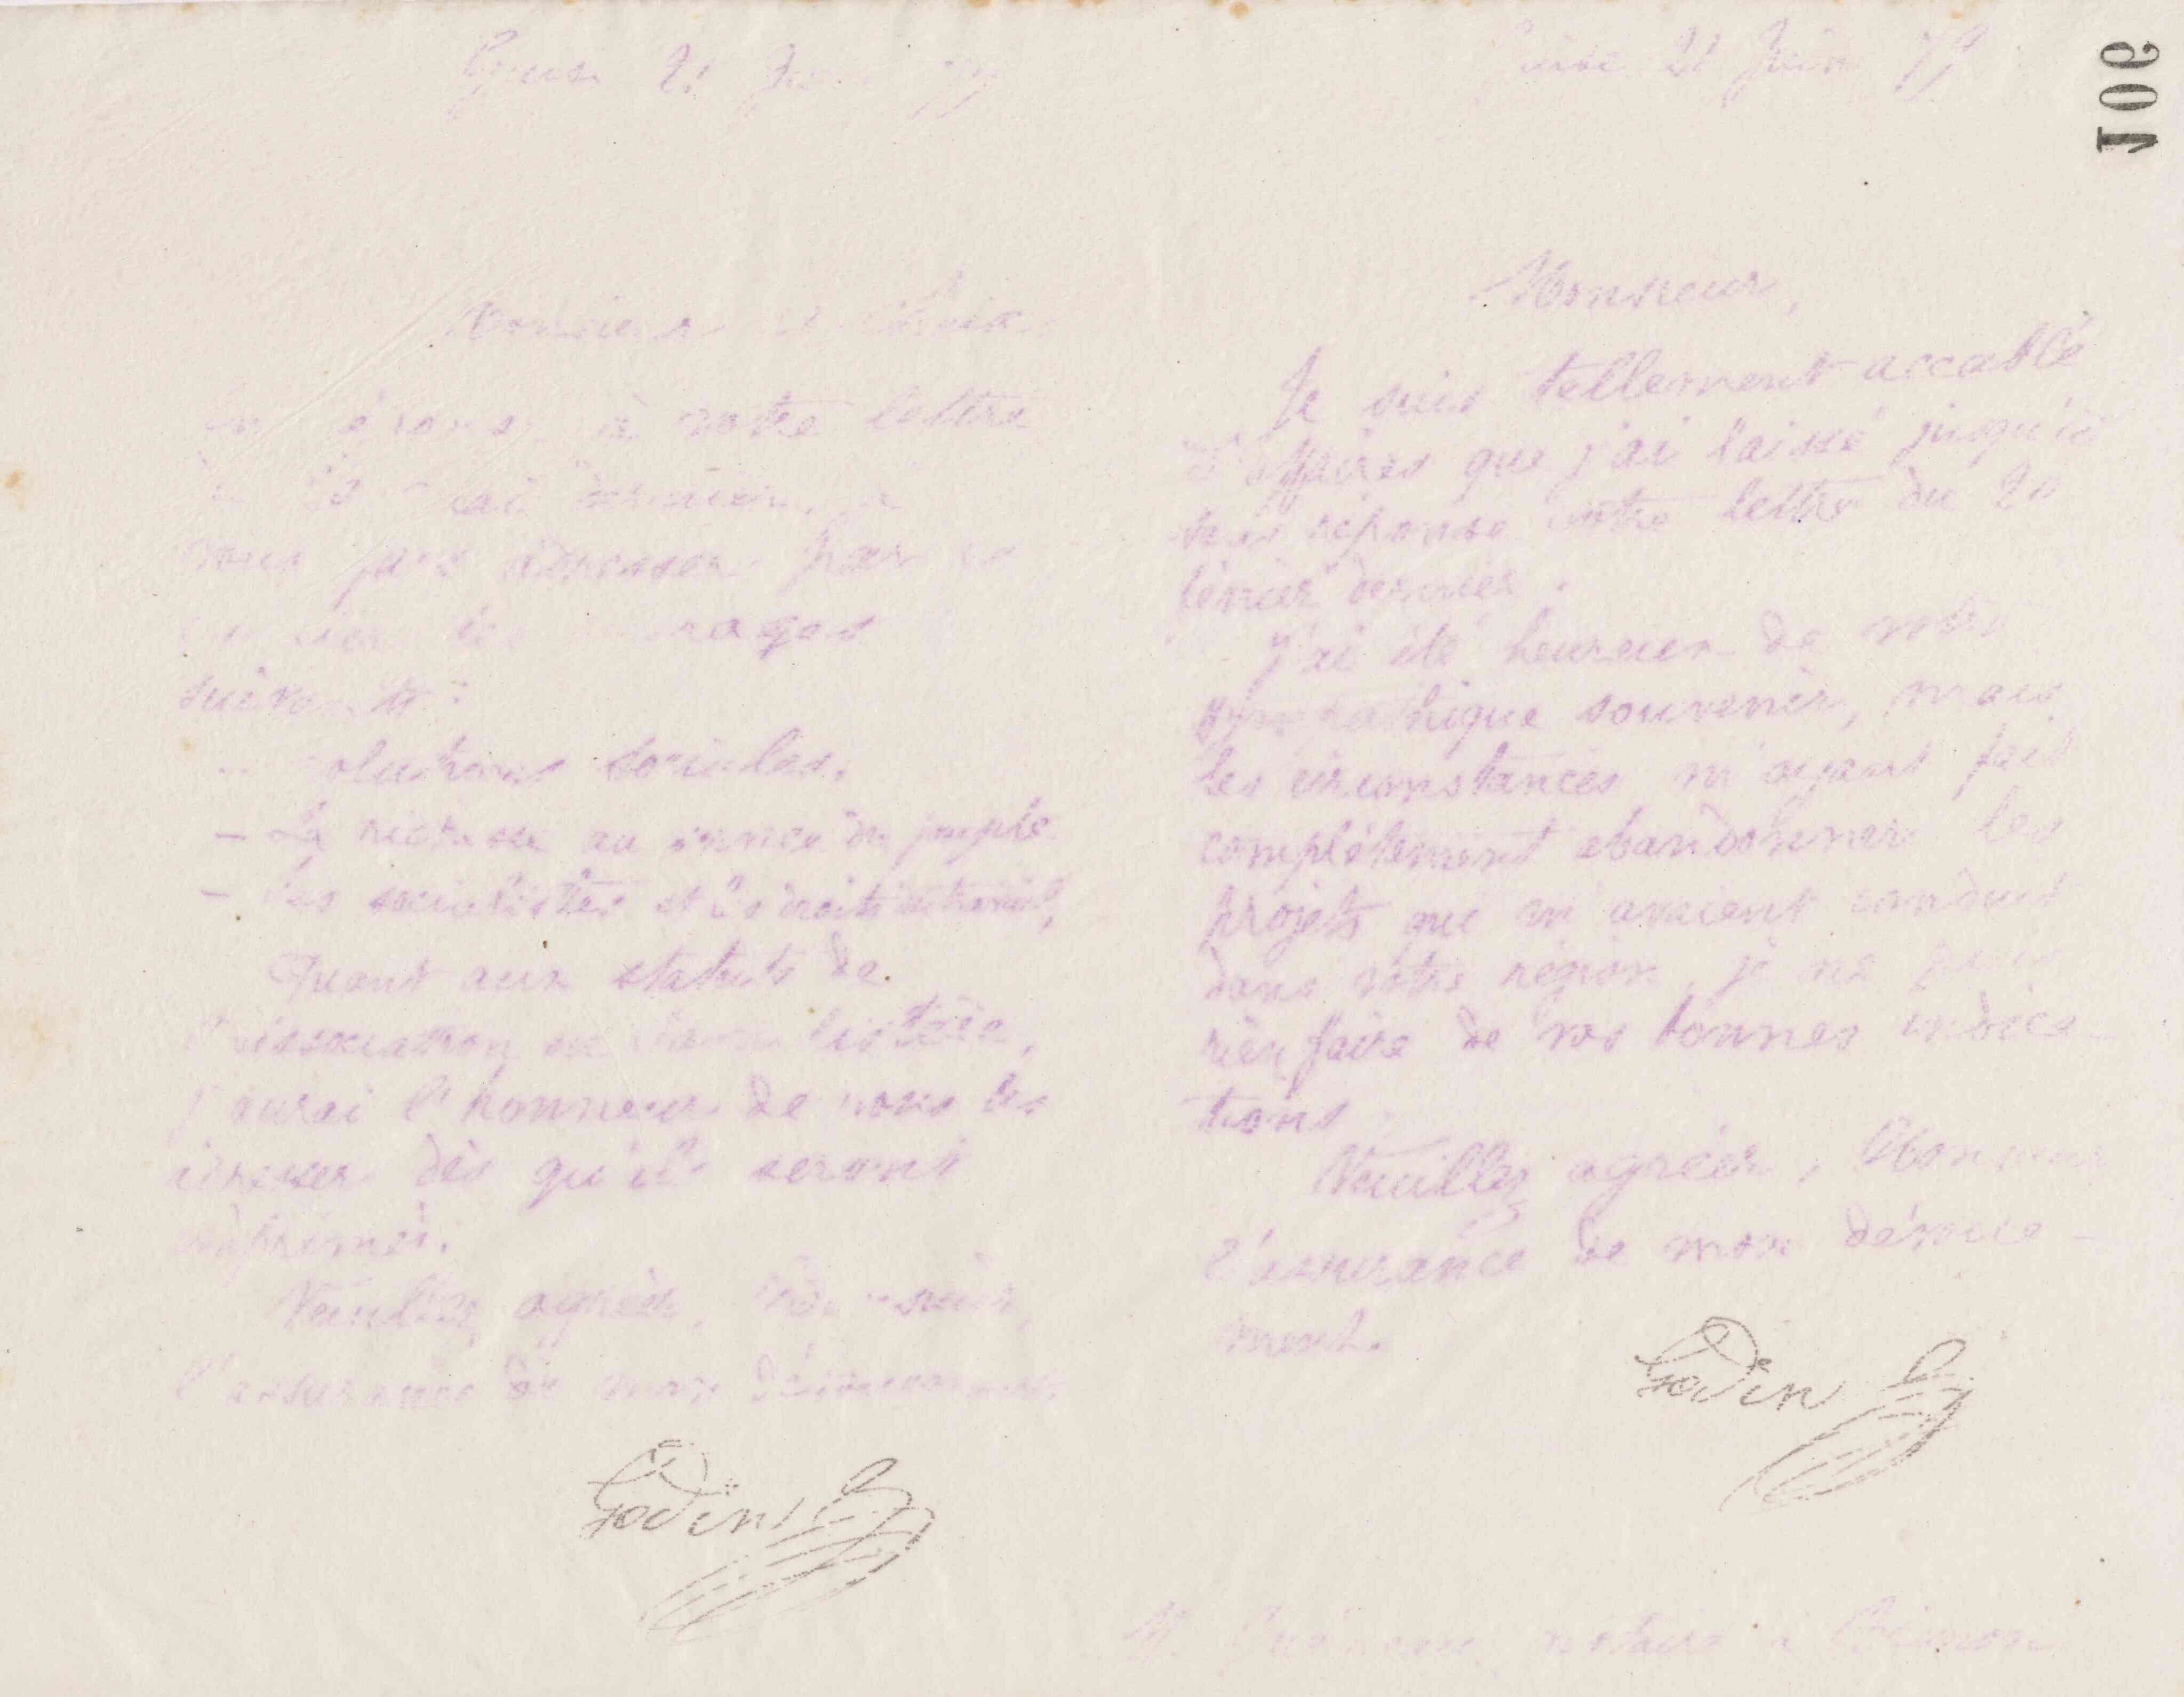 Guise 21 Juin 79
Monsieur
à votre lettre
dernier, je
vous fais adresser par
suivants :
Solutions sociales.
– La richesse au service du peuple
– Les socialistes et les droits du travail,
Quant aux statuts de
l'association
j'aurai l'honneur de vous les
adresser dès qu'ils seront
imprimés.
Veuillez agréer, Monsieur,
l'assurance de mon dévouement.
Godin
106
Guise 21 Juin 79
Monsieur,
Je suis tellement accablé
d'affaires que j'ai laissé jusqu'ici
sans réponse votre lettre du 20
février dernier.
J'ai été heureux de votre
sympathique souvenir, mais
les circonstances m'ayant fait
complètement abandonner les
projets qui m'avaient conduit
dans votre région, je ne puis
rien faire de vos bonnes indica-
tions
Veuillez agréer, Monsieur
l'assurance de mon dévoue-
ment.
Godin
M. notaire à